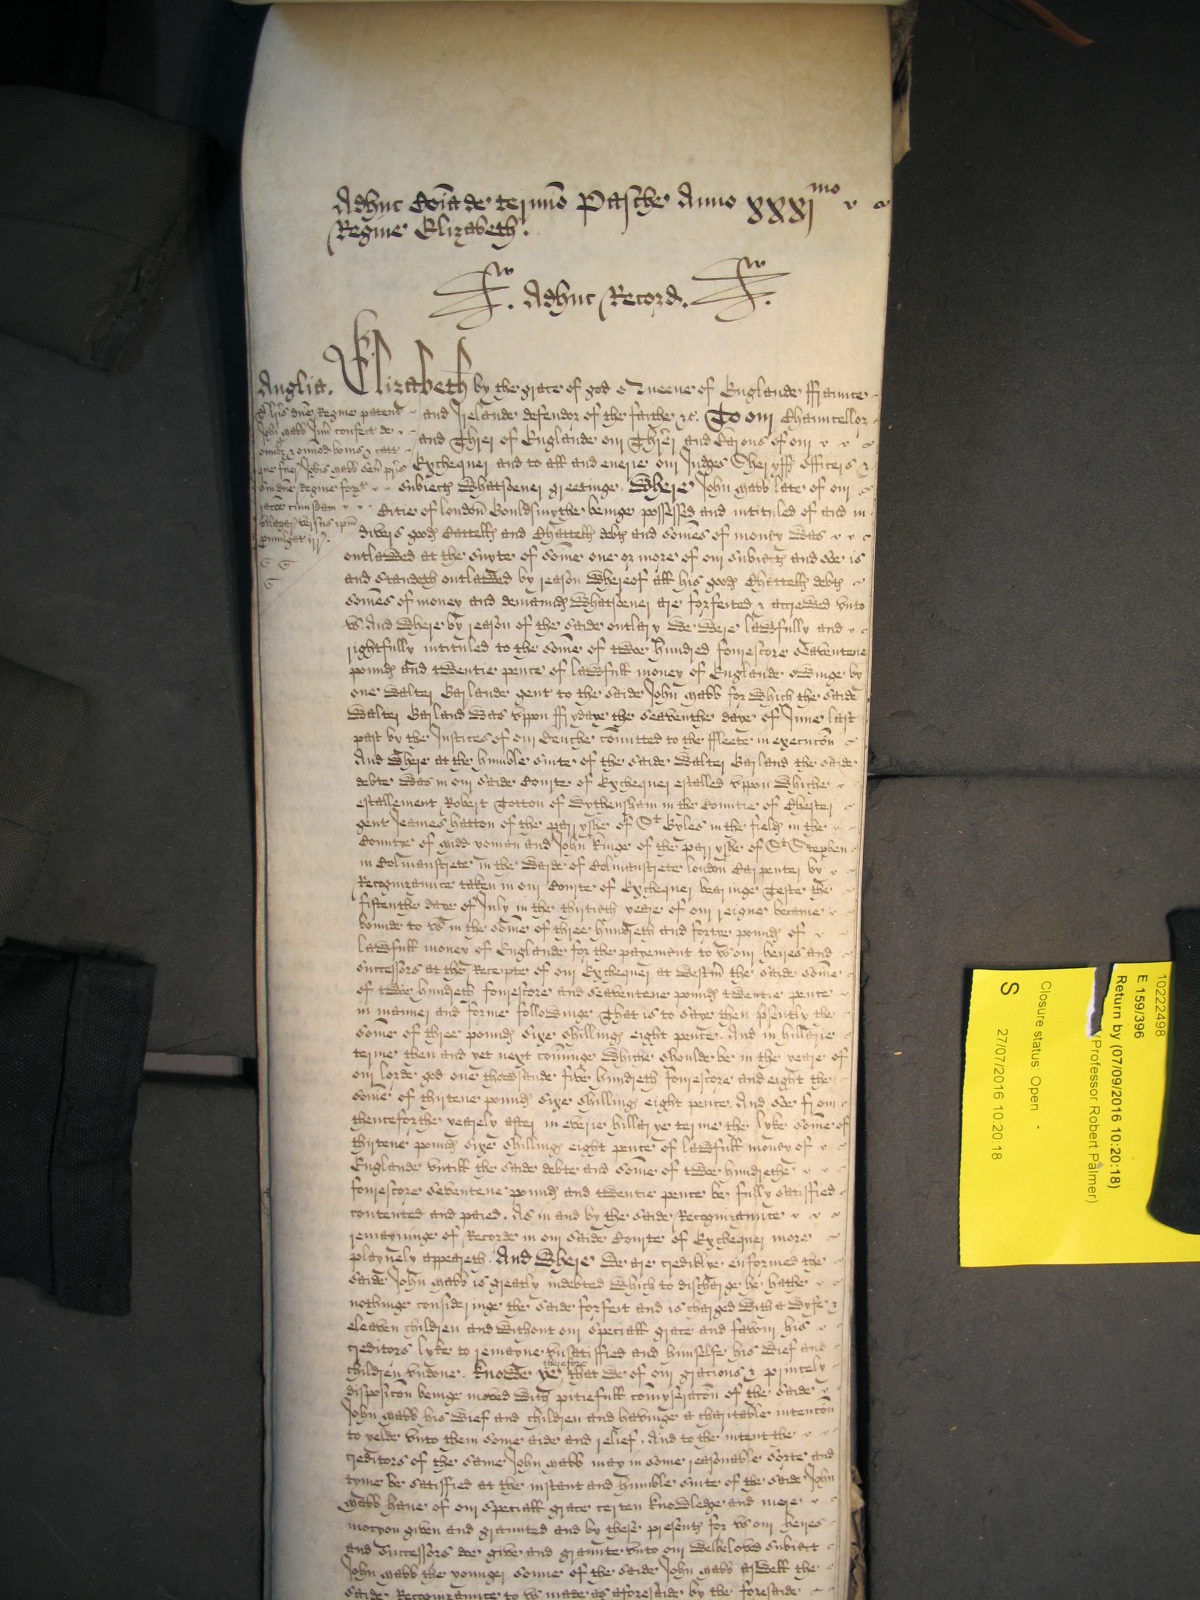 Adhuc Coi͠a de termi͠o Pasche Anno xxxj mo
Regine Elizabeth.
Adhuc Record.
Anglia.
Elizabeth by the grace of god Queene of Englande ffraunce
and Irelande defendor of the faithe &c. To our Chauncellor
and Thrẽr of Englande our Thrẽr and Barons of our
Exchequer and to all and everie our Judges Sheryffs officers &
subiects whatsoever greetinge. Where John Mabb late of our
Cittie of london Gouldsmythe beinge possessed and intituled of and in
divers goods Cattells and Chattells debts and somẽs of money was
outlawed at the suyte of some one or more of our subiects and soe is
and standeth outlawed by reason whereof all his goods Chattells debts
somẽs of money and demaunds whatsoever are forfeited & accrewed unto
us And where by reason of the saide outlary we were lawfully and
rightfully intituled to the some of twoe hundred fourescore seaventene
pounds and twentie pence of lawfull money of Englande owinge by
one Walter Garlande gent to the saide John Mabb for which the saide
Walter Garland was uppon ffrydaye the seaventhe daye of June last
past by the Justices of our benche com̃itted to the ffleete in execuc̃on
And where at the humble suite of the saide Walter Garland the saide
debte was in our saide Courte of Exchequer estalled uppon whiche
estallement Robert Totton of Wythensham in the Countie of Chester
gent Jeames hatton of the parryshe of St Gyles in the fields in the
Countye of midd yoman and John kinge of the parryshe of St Stephen
in Colmanstrete in the warde of Colmanstrete london Carpenter by
Recognizaunce taken in our Courte of Exchequer bearinge Teste the
fiftenthe daye of July in the thirtieth yeare of our reigne became
bounde to us in the some of three hundreth and fortye pounds of
lawfull money of Englande for the payement to us our heires and
successors at the Receipte of our Exchequer at Westm̃ the saide some
of twoe hundreth fourescore and seaventene pounds twentie pence
in manner and forme followinge That is to saye then p̃sently the
some of three pounds sixe shillings eight pence. And in hillarie
terme then and yet next com̃inge whiche shoulde be in the yeare of
our lorde god one thowsande five hundreth fourescore and eight the
some of thirtene pounds sixe shillings eight pence. And soe from
thenceforthe yearely after in everie hillarye terme the lyke some of
thirtene pounds sixe shillings eight pence of lawfull money of
Englande untill the saide debte and some of twoe hundrethe
fourescore seventene pounds and twentie pence be fully satisffied
contented and paied. As in and by the saide Recognizaunce
remayninge of Recorde in our saide Courte of Exchequer more
playnely appeareth. And Where we are crediblye enformed the
saide John Mabb is greatly indebted which to discharge he hathe
nothinge consideringe the saide forfeit and is charged with a wyfe &
eleaven children and without our speciall grace and favour his
creditors lyke to remayne unsatisffied and himselfe his wief and
children undone. Knowe ye therefore that we of our gracious & princely
disposic̃on beinge moved with pitiefull com̃yserac̃on of the saide
John Mabb his wief and children and havinge a charitable intenc̃on
to yelde unto them some aide and relief. And to the intent the
creditors of the same John Mabb may in some reasonable sorte and
tyme be satisffied at the instant and humble suite of the saide John
Mabb have of our speciall grace certen knowledge and mere
mocyon given and graunted and by these presents for us our heires
and successors doe give and graunte unto our welbeloved subiect
John Mabb the younger sonne of the saide John Mabb aswell the
saide Recognizaunce to us made as aforesaide by the foresaide
10222498
E 159/396
Return by (07/09/2016 10:20:18)
(Professor Robert Palmer)
Closure status: Open
S
27/07/2016 10:20:18